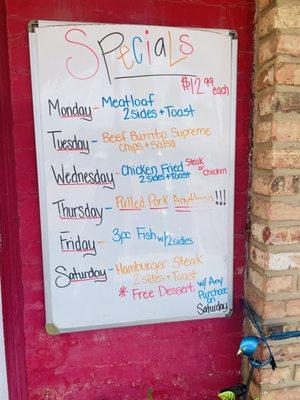 Specials
$12.99 each
Monday - Meatloaf
2 sides + Toast
Tuesday - Beef Burrito Supreme
chips + salsa
Wednesday - Chicken Fried Steak or Chicken
2 sides + Toast
Thursday - Pulled Pork Anything!!!
Friday - 3pc Fish w/ 2 sides
Saturday - Hamburger Steak
2 sides + Toast
* Free Dessert w/ Any Purchase on Saturday